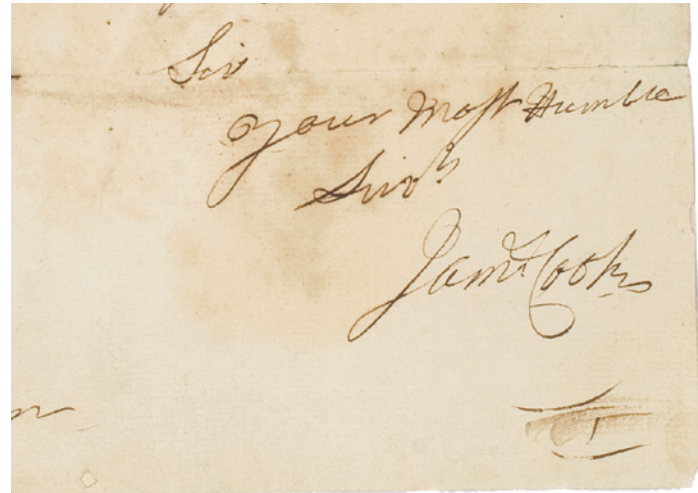 Sir
Your Most Humble
Serv.t
Jam.s Cook